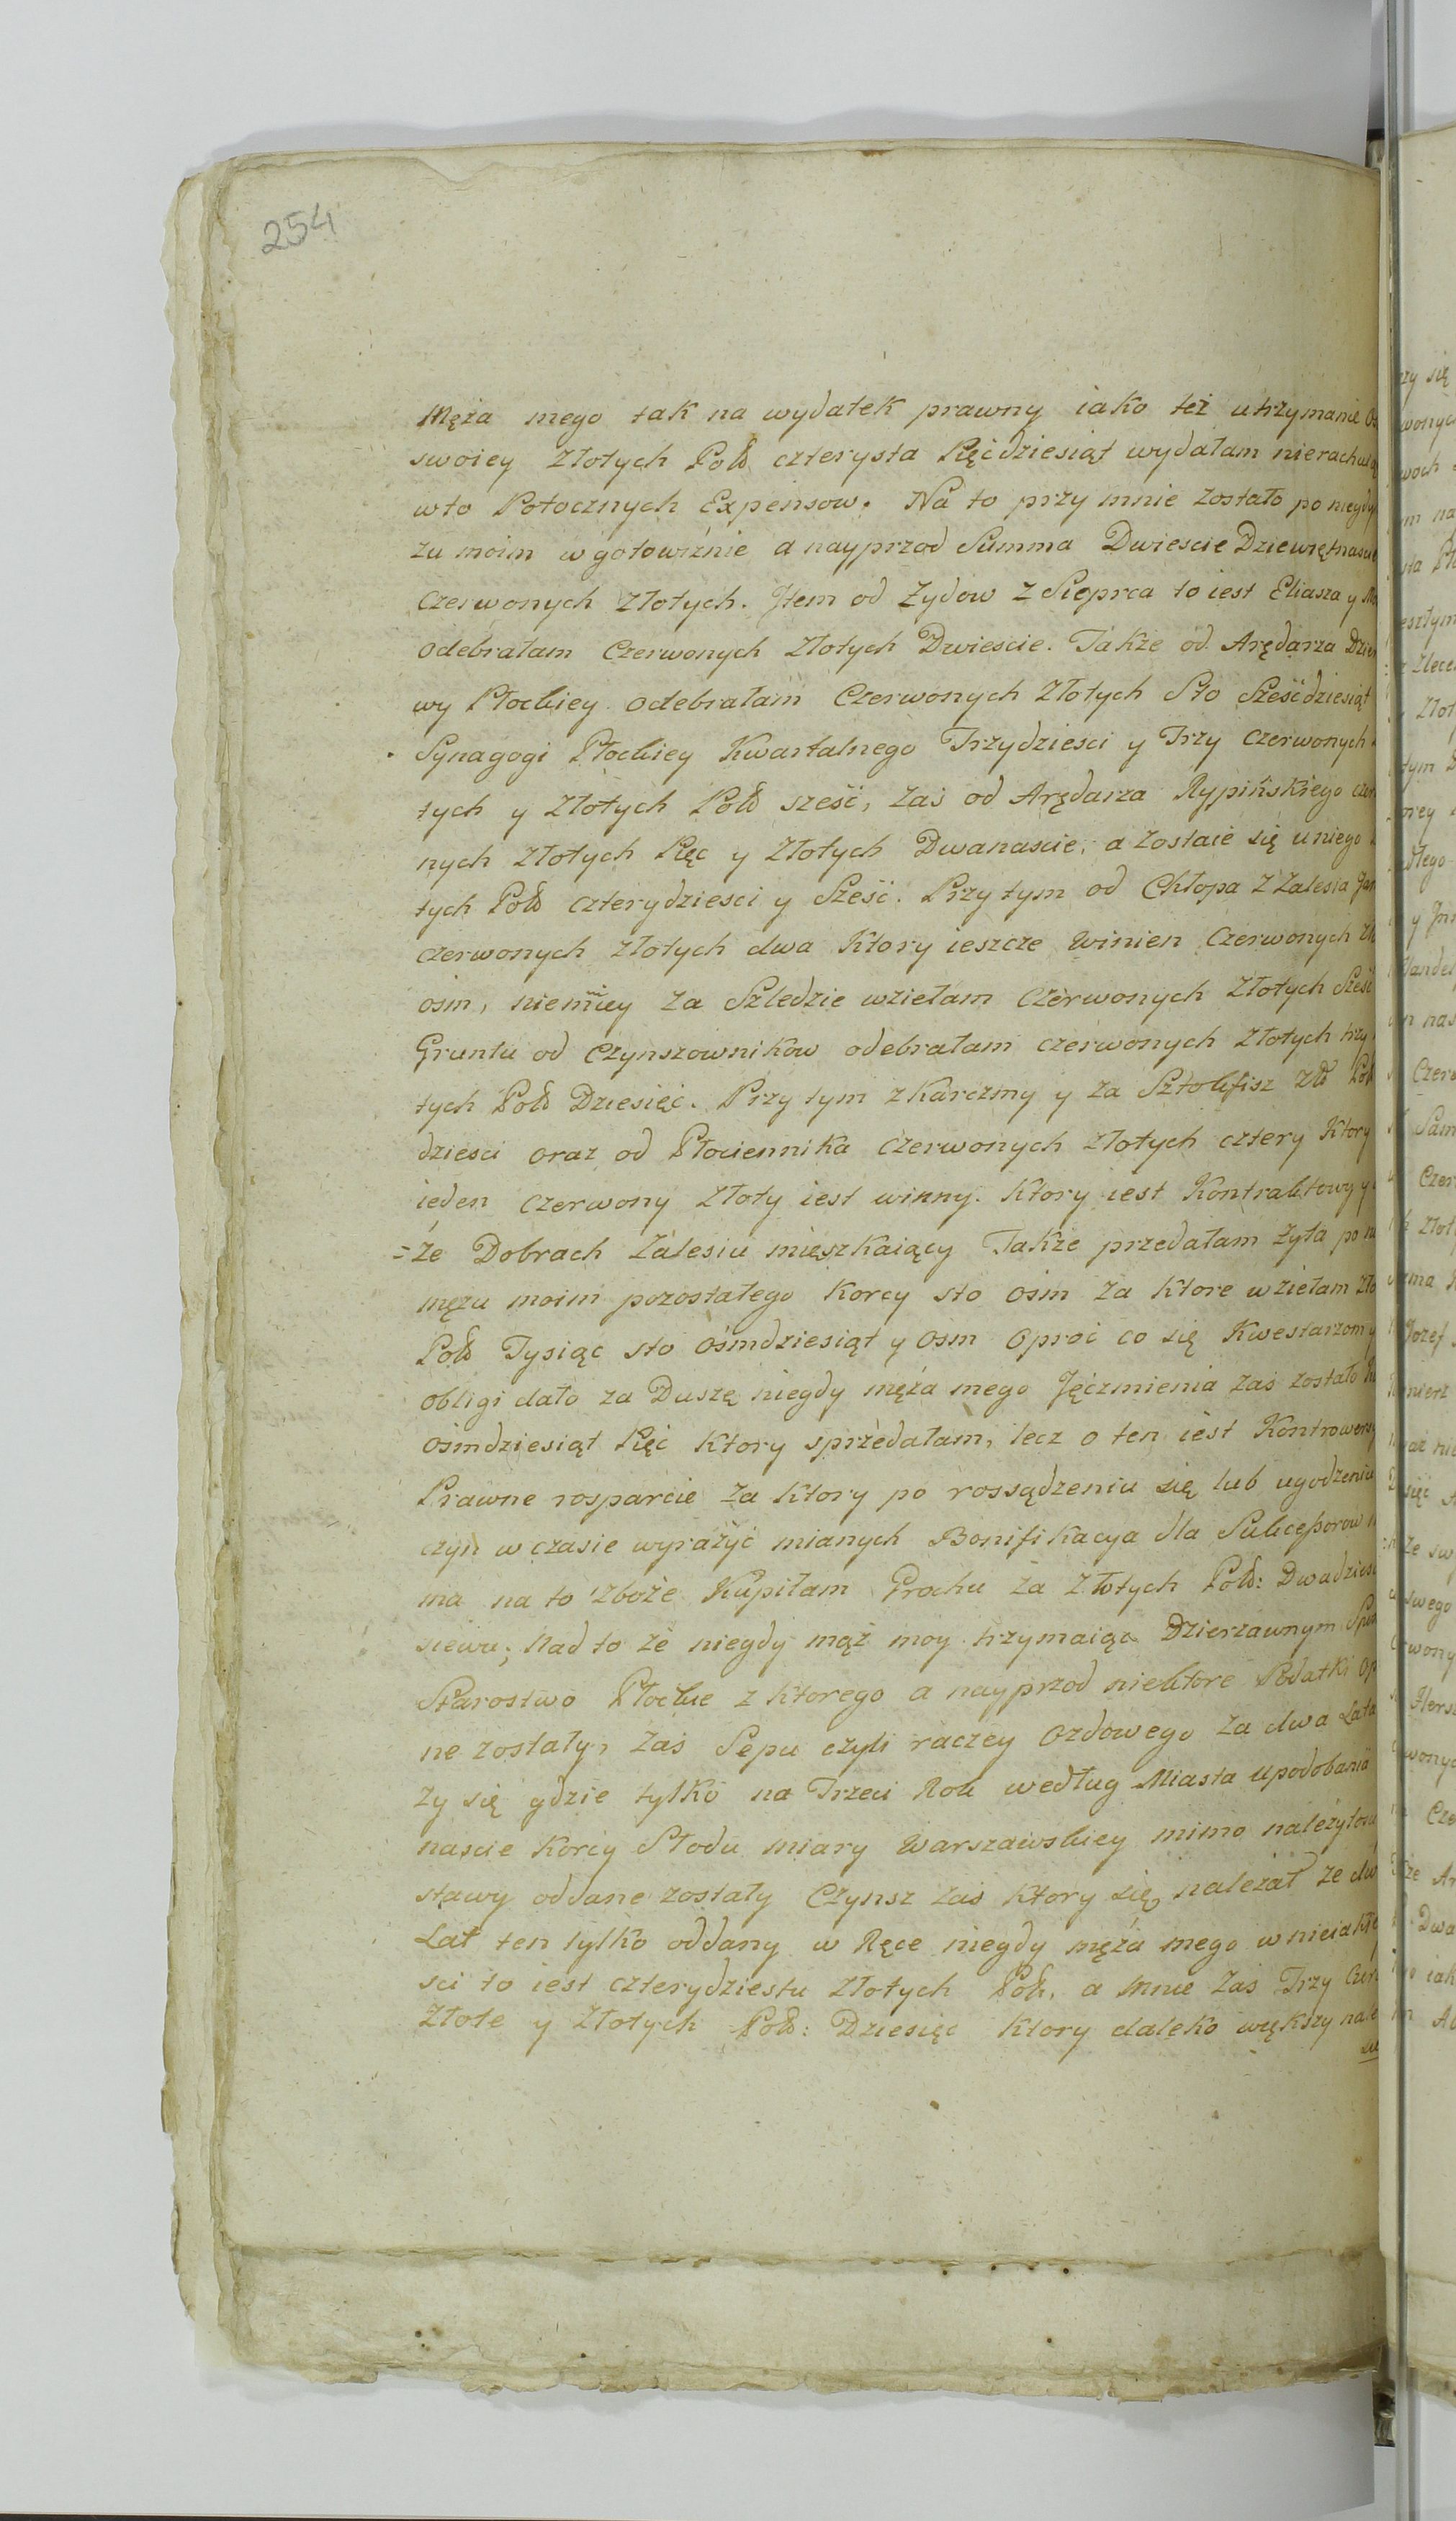 254
Męża mego tak na wydatek prawny iako też utrzymanie
swoiey Złotych Pols czterysta Pięcdziesiąt wydałam nierachuią
wto Potocznych Expensow. Na to przy mnie zostało po niegdy
zu moim w gotowiźnie a nayprzod Summa Dwiescie Dziewiętnascie
Czerwonych Złotych. Jtem od Żydow z Sieprca to iest Eliasza y
odebrałam Czerwonych Złotych Dwiescie. Także od Arędarza Dzier
wy Płockiey odebrałam Czerwonych Złotych Sto Sześćdziesiąt
Synagogi Płockiey Kwartalnego Trzydziesci y Trzy Czerwonych
tych y Złotych Pols sześć, zaś od Arędarza Rypińskiego czer
nych Złotych Pięc y Złotych Dwanascie, a zostaie się u niego
tych Pols czterydziesci y Sześć. Przy tym od Chłopa z Zalesia
czerwonych złotych dwa Ktory ieszcze winien Czerwonych
osm, niemniey za Szledzie wziełam Czerwonych Złotych Sześć
Gruntu od Czynszownikow odebrałam czerwonych złotych trzy
tych Pols Dziesięć. Przy tym z Karczmy y za Sztokfisz Zls Pols
dziesci oraz od Płociennika Czerwonych złotych cztery Ktory
ieden czerwony Złoty iest winny. Ktory iest Kontraktowy y
=że Dobrach Zalesiu mięszkaiący Także przedałam żyta po
mężu moim pozostałego Korcy sto ośm za ktore wziełam
Pols Tysiąc sto ośmdziesiąt y osm oproć co się Kwestarzom y
obligi dało za Duszę niegdy męża mego Jęczmienia zaś zostało
ośmdziesiąt Pięć Ktory sprzedałam, lecz o ten iest Kontrowers
Prawne rosparcie za Ktory po rossądzeniu się lub ugodzeniu
czyn w czasie wyrażyć mianych Bonifikacya dla Sukceßorow
ma na to zboże Kupiłam Grochu za Złotych Pols: Dwadzies
siewu; Nad to że niegdy mąż moy trzymaiąc Dzierzawnym
Starostwo Płockie z ktorego a nayprzod niektore Podatki
ne zostały, Zaś Sepu czyli raczey Ozdowego za dwa Lata
ży się gdzie tylko na Trzeci Rok według Miasta upodobania
nascie Korcy Słodu miary Warszawskiey mimo należytosc
stawy oddane zostały Czynsz zaś Ktory się należał ze dw
Lat ten tylko oddany w Ręce niegdy męża mego w nieiakie
sci to iest czterydziestu Złotych Pols, a Mnie Zas Trzy
Złote y Złotych Pols: Dziesięć Ktory daleko większy nale